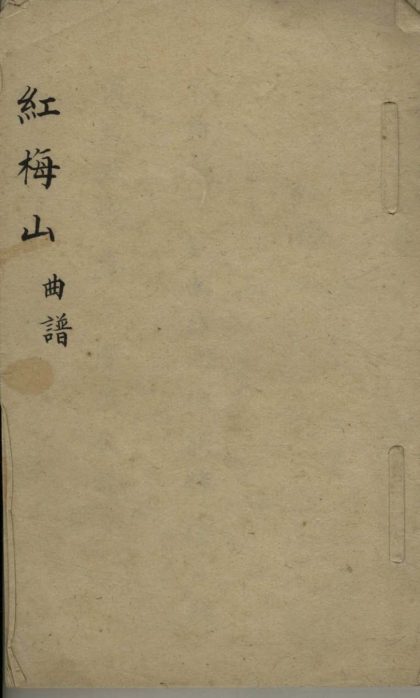 紅梅山
曲譜